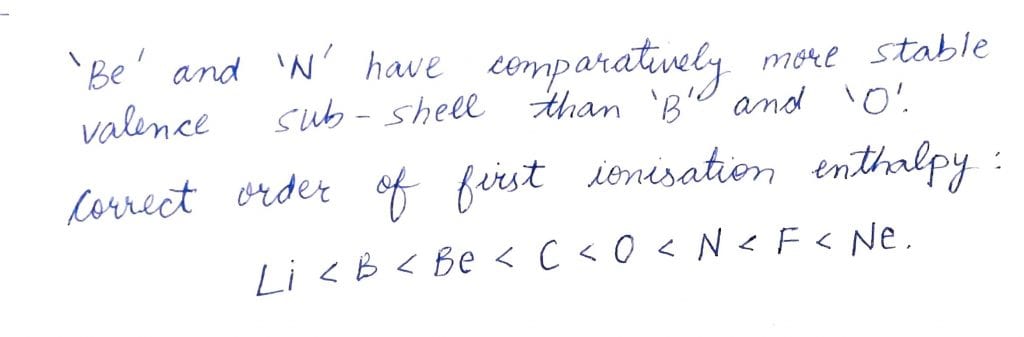 'Be' and 'N' have comparatively more stable
valence sub-shell than 'B' and 'O'.
Correct order of first ionisation enthalpy :
Li < B < Be < C < O < N < F < Ne.